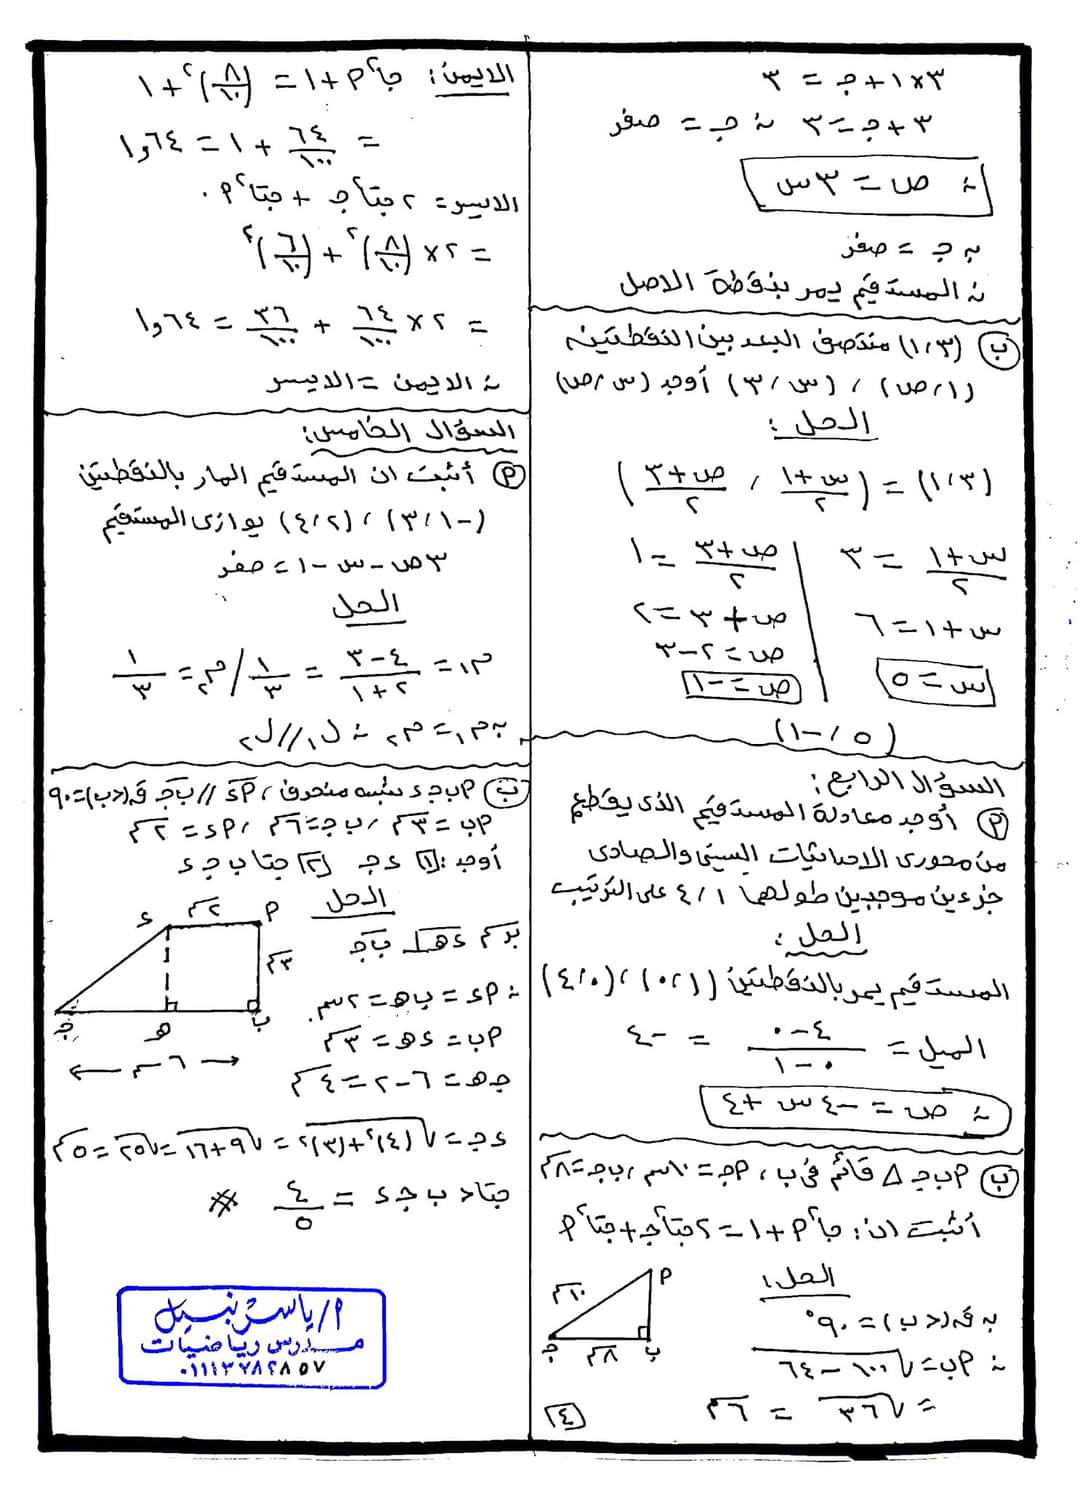 ٣×١+جـ = ٣
٣+جـ=٣ ∴ جـ = صفر
∴ ص = ٣س
∵ جـ = صفر
∴ المستقيم يمر بنقطة الاصل
ب (٣،١) منتصف البعد بين النقطتين
(١،ص) ، (س،٣) أوجد (س،ص)
الحل:
(٣،١) = (س+١/٢ ، ص+٣/٢)
س+١/٢ = ٣
س+١=٦
س=٥
ص+٣/٢ = ١
ص+٣=٢
ص=٢-٣
ص=-١
(٥،-١)
السؤال الرابع:
أ أوجد معادلة المستقيم الذى يقطع
من محورى الاحداثيات السينى والصادى
جزءين موجبين طولهما ١،٤ على الترتيب
الحل:
المستقيم يمر بالنقطتين (١،٠)،(٠،٤)
الميل = ٤-٠/٠-١ = -٤
∴ ص = -٤س+٤
ب أ ب جـ Δ قائم فى ب، أجـ=١٠سم، ب جـ=٨سم
أثبت ان: جا²أ+١=٢جتا²جـ+جتا²أ
الحل:
أ
١٠سم
جـ ٨سم ب
∵ ق(<ب)=٩٠°
∴ أب=√١٠٠-٦٤
=√٣٦ = ٦سم
٤
الايمن: جا²أ+١= (٨/١٠)²+١
= ٦٤/١٠٠ + ١ = ١,٦٤
الايسر= ٢جتا²جـ + جتا²أ
= ٢×(٨/١٠)²+(٦/١٠)²
= ٢×٦٤/١٠٠ + ٣٦/١٠٠ = ١,٦٤
∴ الايمن = الايسر
السؤال الخامس:
أ أثبت ان المستقيم المار بالنقطتين
(-١،٣)،(٢،٤) يوازى المستقيم
٣ص-س-١=صفر
الحل
م١= ٤-٣/٢+١ = ١/٣ / م٢= ١/٣
∵ م١=م٢ ∴ ل١//ل٢
ب أ ب جـ ء شبه منحرف، أء // ب جـ ق(<ب)=٩٠
أب=٣سم، ب جـ=٦سم، أء=٢سم
أوجد: ١ ء جـ ٢ جتا ب جـ ء
الحل
ء ٢سم أ
٣سم
جـ هـ ب
٦سم
برسم ءهـ ⊥ ب جـ
∴ أء = ب هـ = ٢سم.
أب = ءهـ = ٣سم
جـ هـ = ٦-٢ = ٤سم
ء جـ = √(٤)²+(٣)² = √٩+١٦ = √٢٥ = ٥سم
جتا< ب جـ ء = ٤/٥ #
أ/ ياسر نبيل
مدرس رياضيات
٠١١١٢٧٨٢٨٥٧